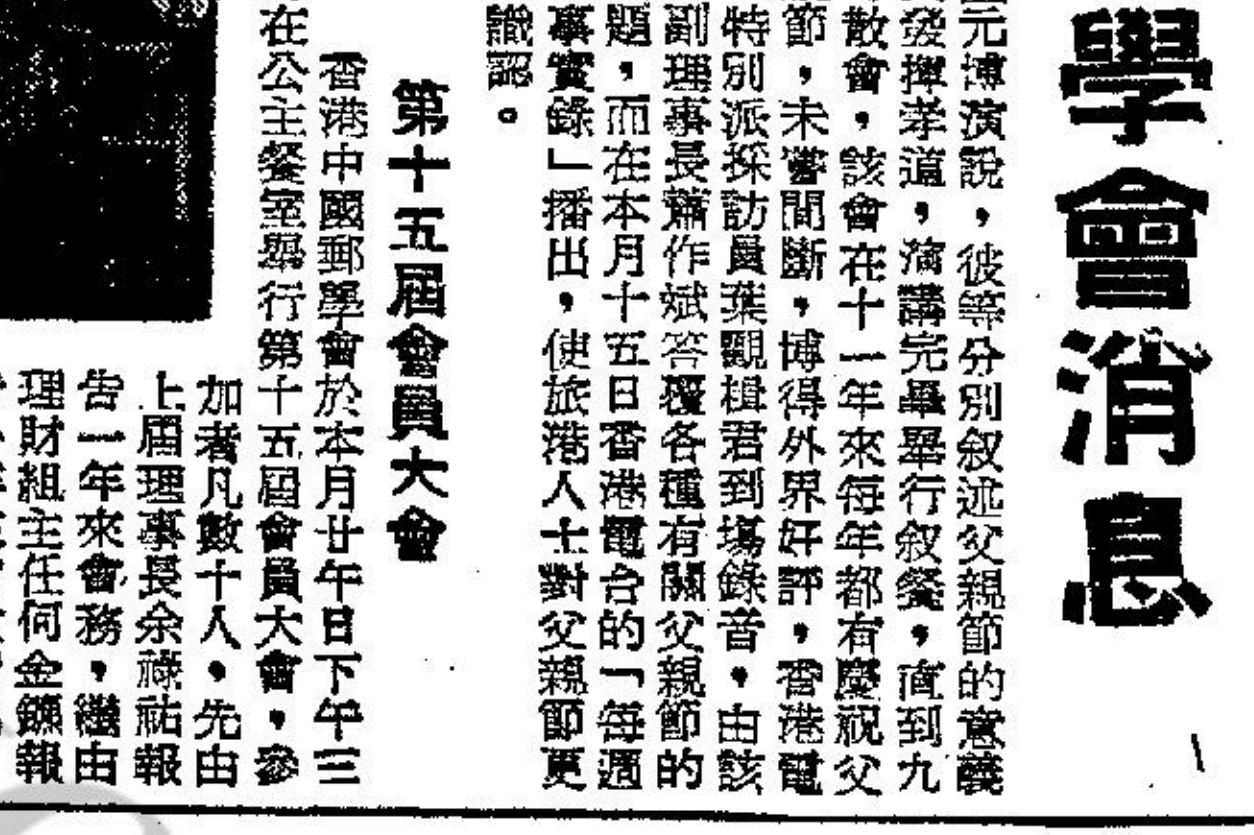 學會消息
元博演說，彼等分別叙述父親節的意義
發揮孝道，演講完畢舉行叙餐，直到九
散會，該會在十一年來每年都有慶祝父
節，未嘗間斷，博得外界好評，香港電
特別派採訪員葉觀楫君到塲錄音，由該
副理事長蕭作斌答覆各種有關父親節的
題，而在本月十五日香港電台的「每週
事實錄」播出，使旅港人士對父親節更
識認。
第十五屆會員大會
香港中國郵學會於本月廿午日下午三
在公主餐室舉行第十五屆會員大會，參
加者凡數十人，先由
上屆理事長余祿祐報
告一年來會務，繼由
理財組主任何金鑣報